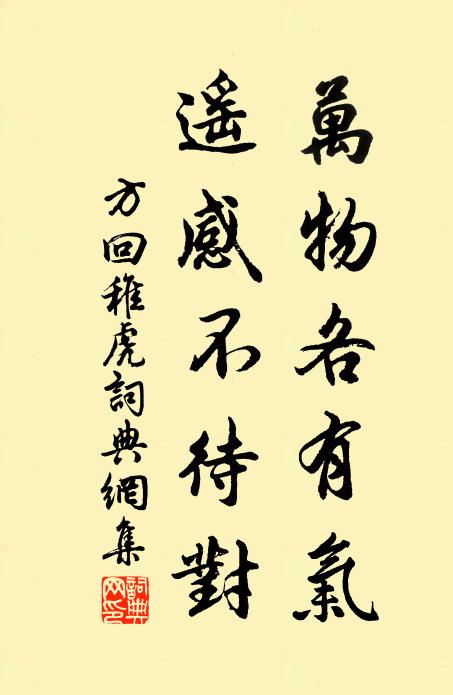 萬物各有氣
遥感不待對
方回稚虎詞典網集
詞典網印